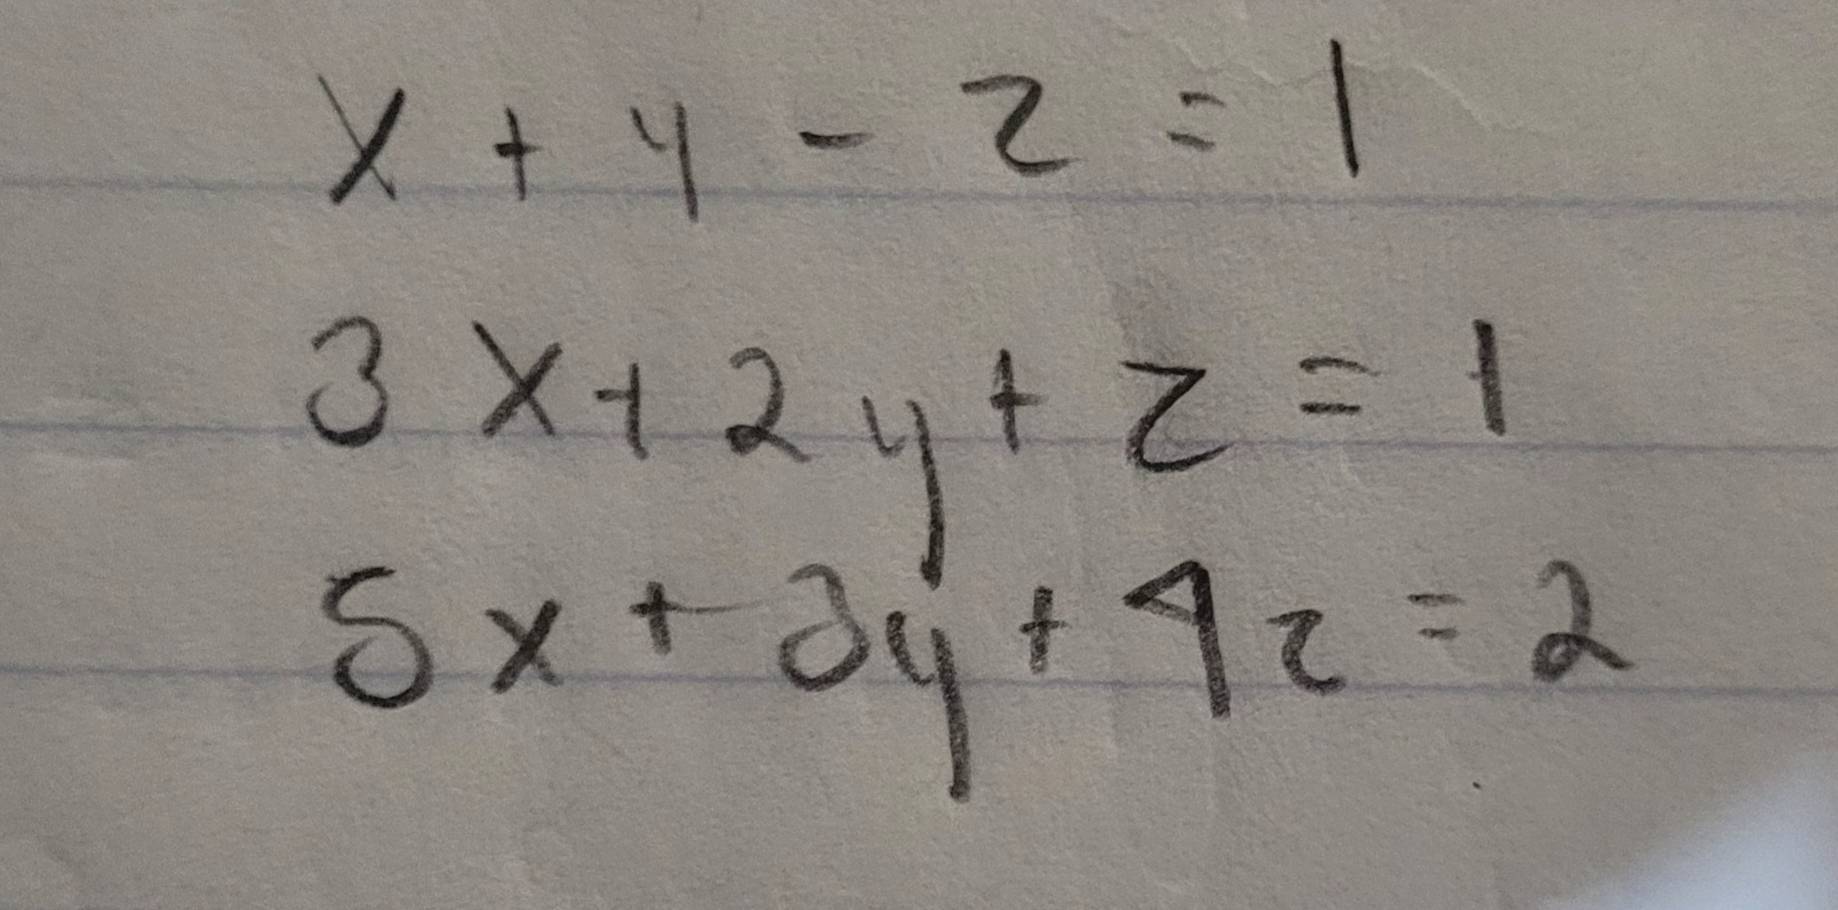 x + y - z = 1
3x + 2y + z = 1
5x + 3y + 4z = 2